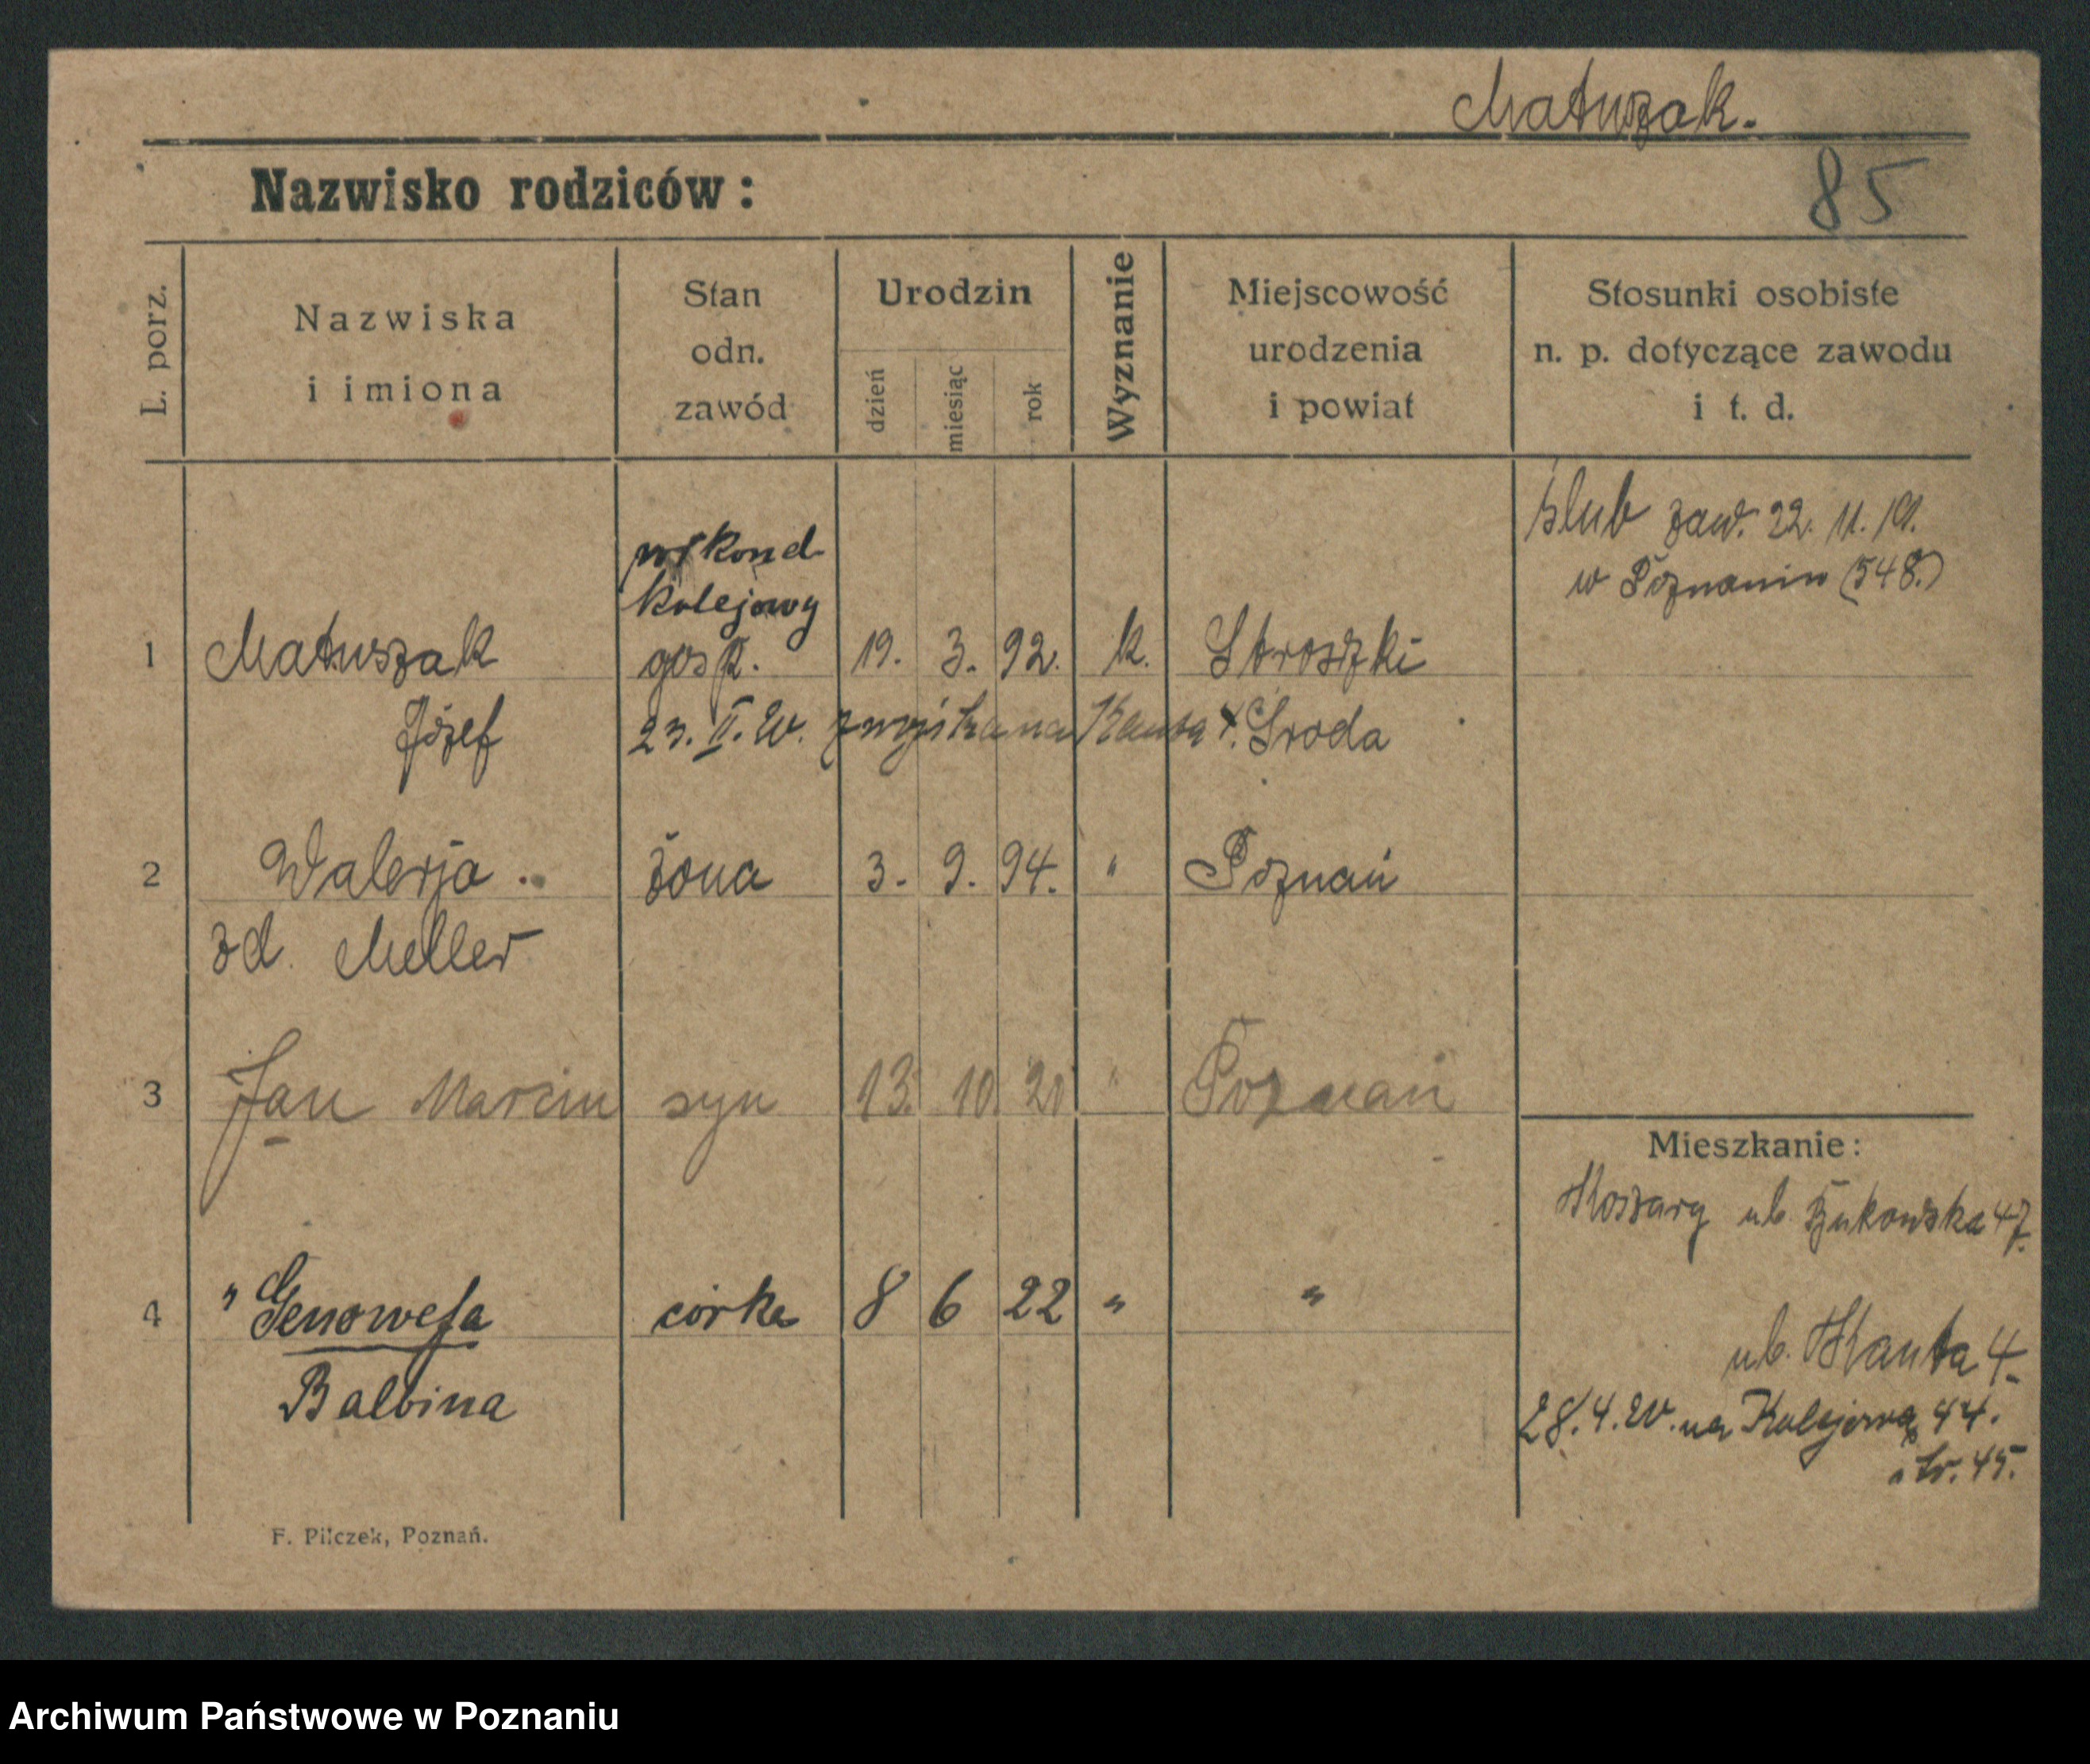 Matuszak.
Nazwisko rodziców:
85
L. porz.
Nazwiska
i imiona
Stan
odn.
zawód
Urodzin
dzień
miesiąc
rok
Wyznanie
Miejscowość
urodzenia
i powiat
Stosunki osobiste
n. p. dotyczące zawodu
i t. d.
ślub zaw. 22. 11. 19.
w Poznaniu (548.)
kond
kolejowy
1 Matuszak gosp. 19. 3. 92. k. Stroszki
Józef 23. II. 20. na Kanta 4. Środa
2 Walerja żona 3. 9. 94. " Poznań
zd. Meller
3 Jan Marcin syn 13. 10. 20 " Poznań
Mieszkanie:
Koszary ul. Bukowska 47.
4 " Genowefa córka 8 6 22 " "
Balbina
ul. Kanta 4.
28. 4. 20. na Kolejową 44.
str. 45.
F. Pilczek, Poznań.
Archiwum Państwowe w Poznaniu